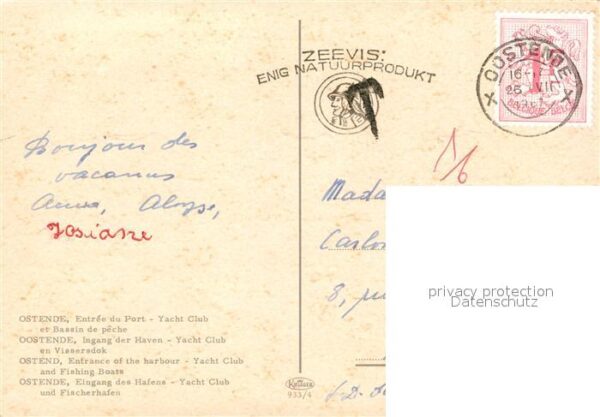 ZEEVIS:
ENIG NATUURPRODUKT
T
OOSTENDE
BELGIQUE-BELGIE
Bonjour des
vacances
Anna, Aloyse,
Josiane
Mada
Carlo
8, rue
privacy protection
Datenschutz
OSTENDE, Entrée du Port - Yacht Club
et Bassin de pêche
OOSTENDE, Ingang der Haven - Yacht Club
en Vissersdok
OSTEND, Entrance of the harbour - Yacht Club
and Fishing Boats
OSTENDE, Eingang des Hafens - Yacht Club
und Fischerhafen
933/4